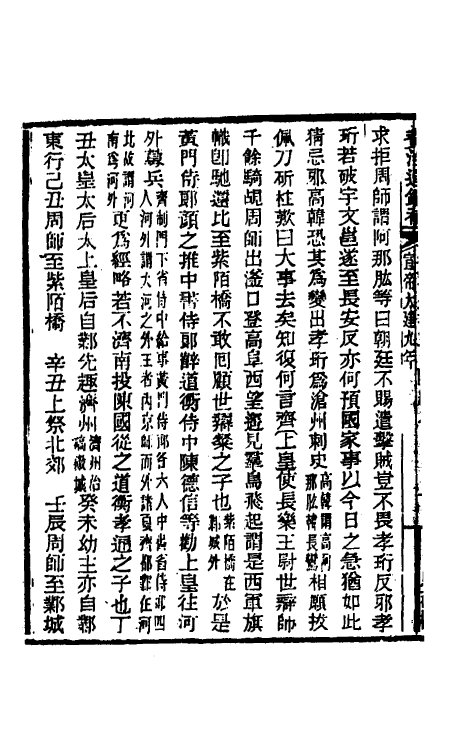 求拒周師謂阿那肱等曰朝廷不賜遣擊賊豈不畏孝珩反邪孝
珩若破宇文邕遂至長安反亦何預國家事以今日之急猶如此
猜忌邪高韓恐其為變出孝珩為滄州刺史高韓謂高阿那肱韓長鸞相願拔
佩刀斫柱歎曰大事去矣知復何言齊上皇使長樂王尉世辯帥
千餘騎覘周師出滏口登高阜西望遙見羣烏飛起謂是西軍旗
幟卽馳還比至紫陌橋不敢回顧世辯粲之子也紫陌橋在鄴城外於是
黃門侍郎顏之推中書侍郎薛道衡侍中陳德信等勸上皇往河
外募兵齊制門下省侍中給事黃門侍郎各六人中書省侍郎四人河外謂大河之外王者內京師而外諸夏齊都鄴在河北故謂河南為河外更為經略若不濟南投陳國從之道衡孝通之子也丁
丑太皇太后太上皇后自鄴先趣濟州濟州治碻磝城癸未幼主亦自鄴
東行己丑周師至紫陌橋　辛丑上祭北郊　壬辰周師至鄴城